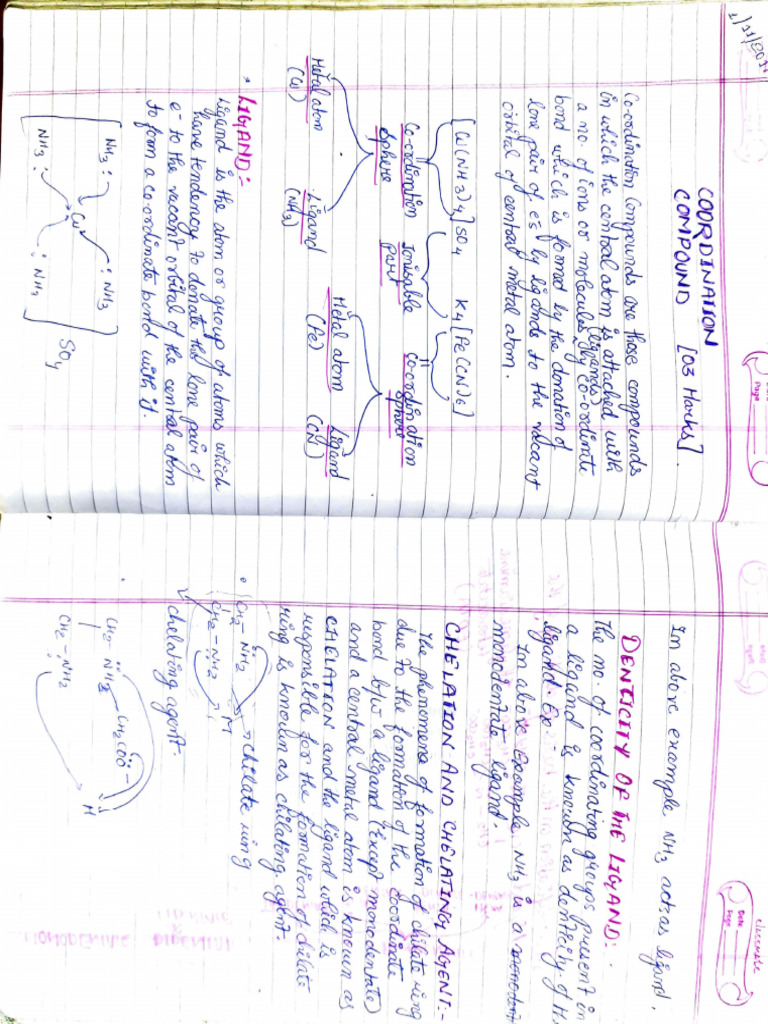 1/11/2021
COORDINATION
COMPOUND [03 Marks].
Co-ordination Compounds are those compounds
in which the central atom is attached with
a no. of ions or molecules (ligands) by co-ordinate
bond which is formed by the donation of
lone pair of e's by ligands to the vacant
orbital of central metal atom.
[Cu(NH3)4]SO4 K4[Fe(CN)6]
Co-ordination Sphere
Ionisable part
Co-ordination Sphere
Metal atom (Cu)
Ligand (NH3)
Metal atom (Fe)
Ligand (CN)
• LIGAND:-
Ligand is the atom or group of atoms which
have tendency to donate the lone pair of
e- to the vacant orbital of the central atom
to form a co-ordinate bond with it.
NH3: :NH3
Cu
NH3: :NH3
SO4
classmate
Date
Page
In above example NH3 act as ligand.
DENTICITY OF THE LIGAND:
The no. of coordinating groups present in
a ligand is known as denticity of the
ligand. Ex
In above Example, NH3 is a
monodentate ligand.
CHELATION AND CHELATING AGENT:-
The phenomena of formation of chilate ring
due to the formation of the coordinate
bond b/w a ligand (Except monodentate)
and a central metal atom is known as
CHELATION and the ligand which is
responsible for the formation of chilate
ring is known as chilating agent.
CH2-NH2
M → chilate ring
CH2-NH2
chelating agent.
CH2-NH-CH2COO-
M
CH2-NH2